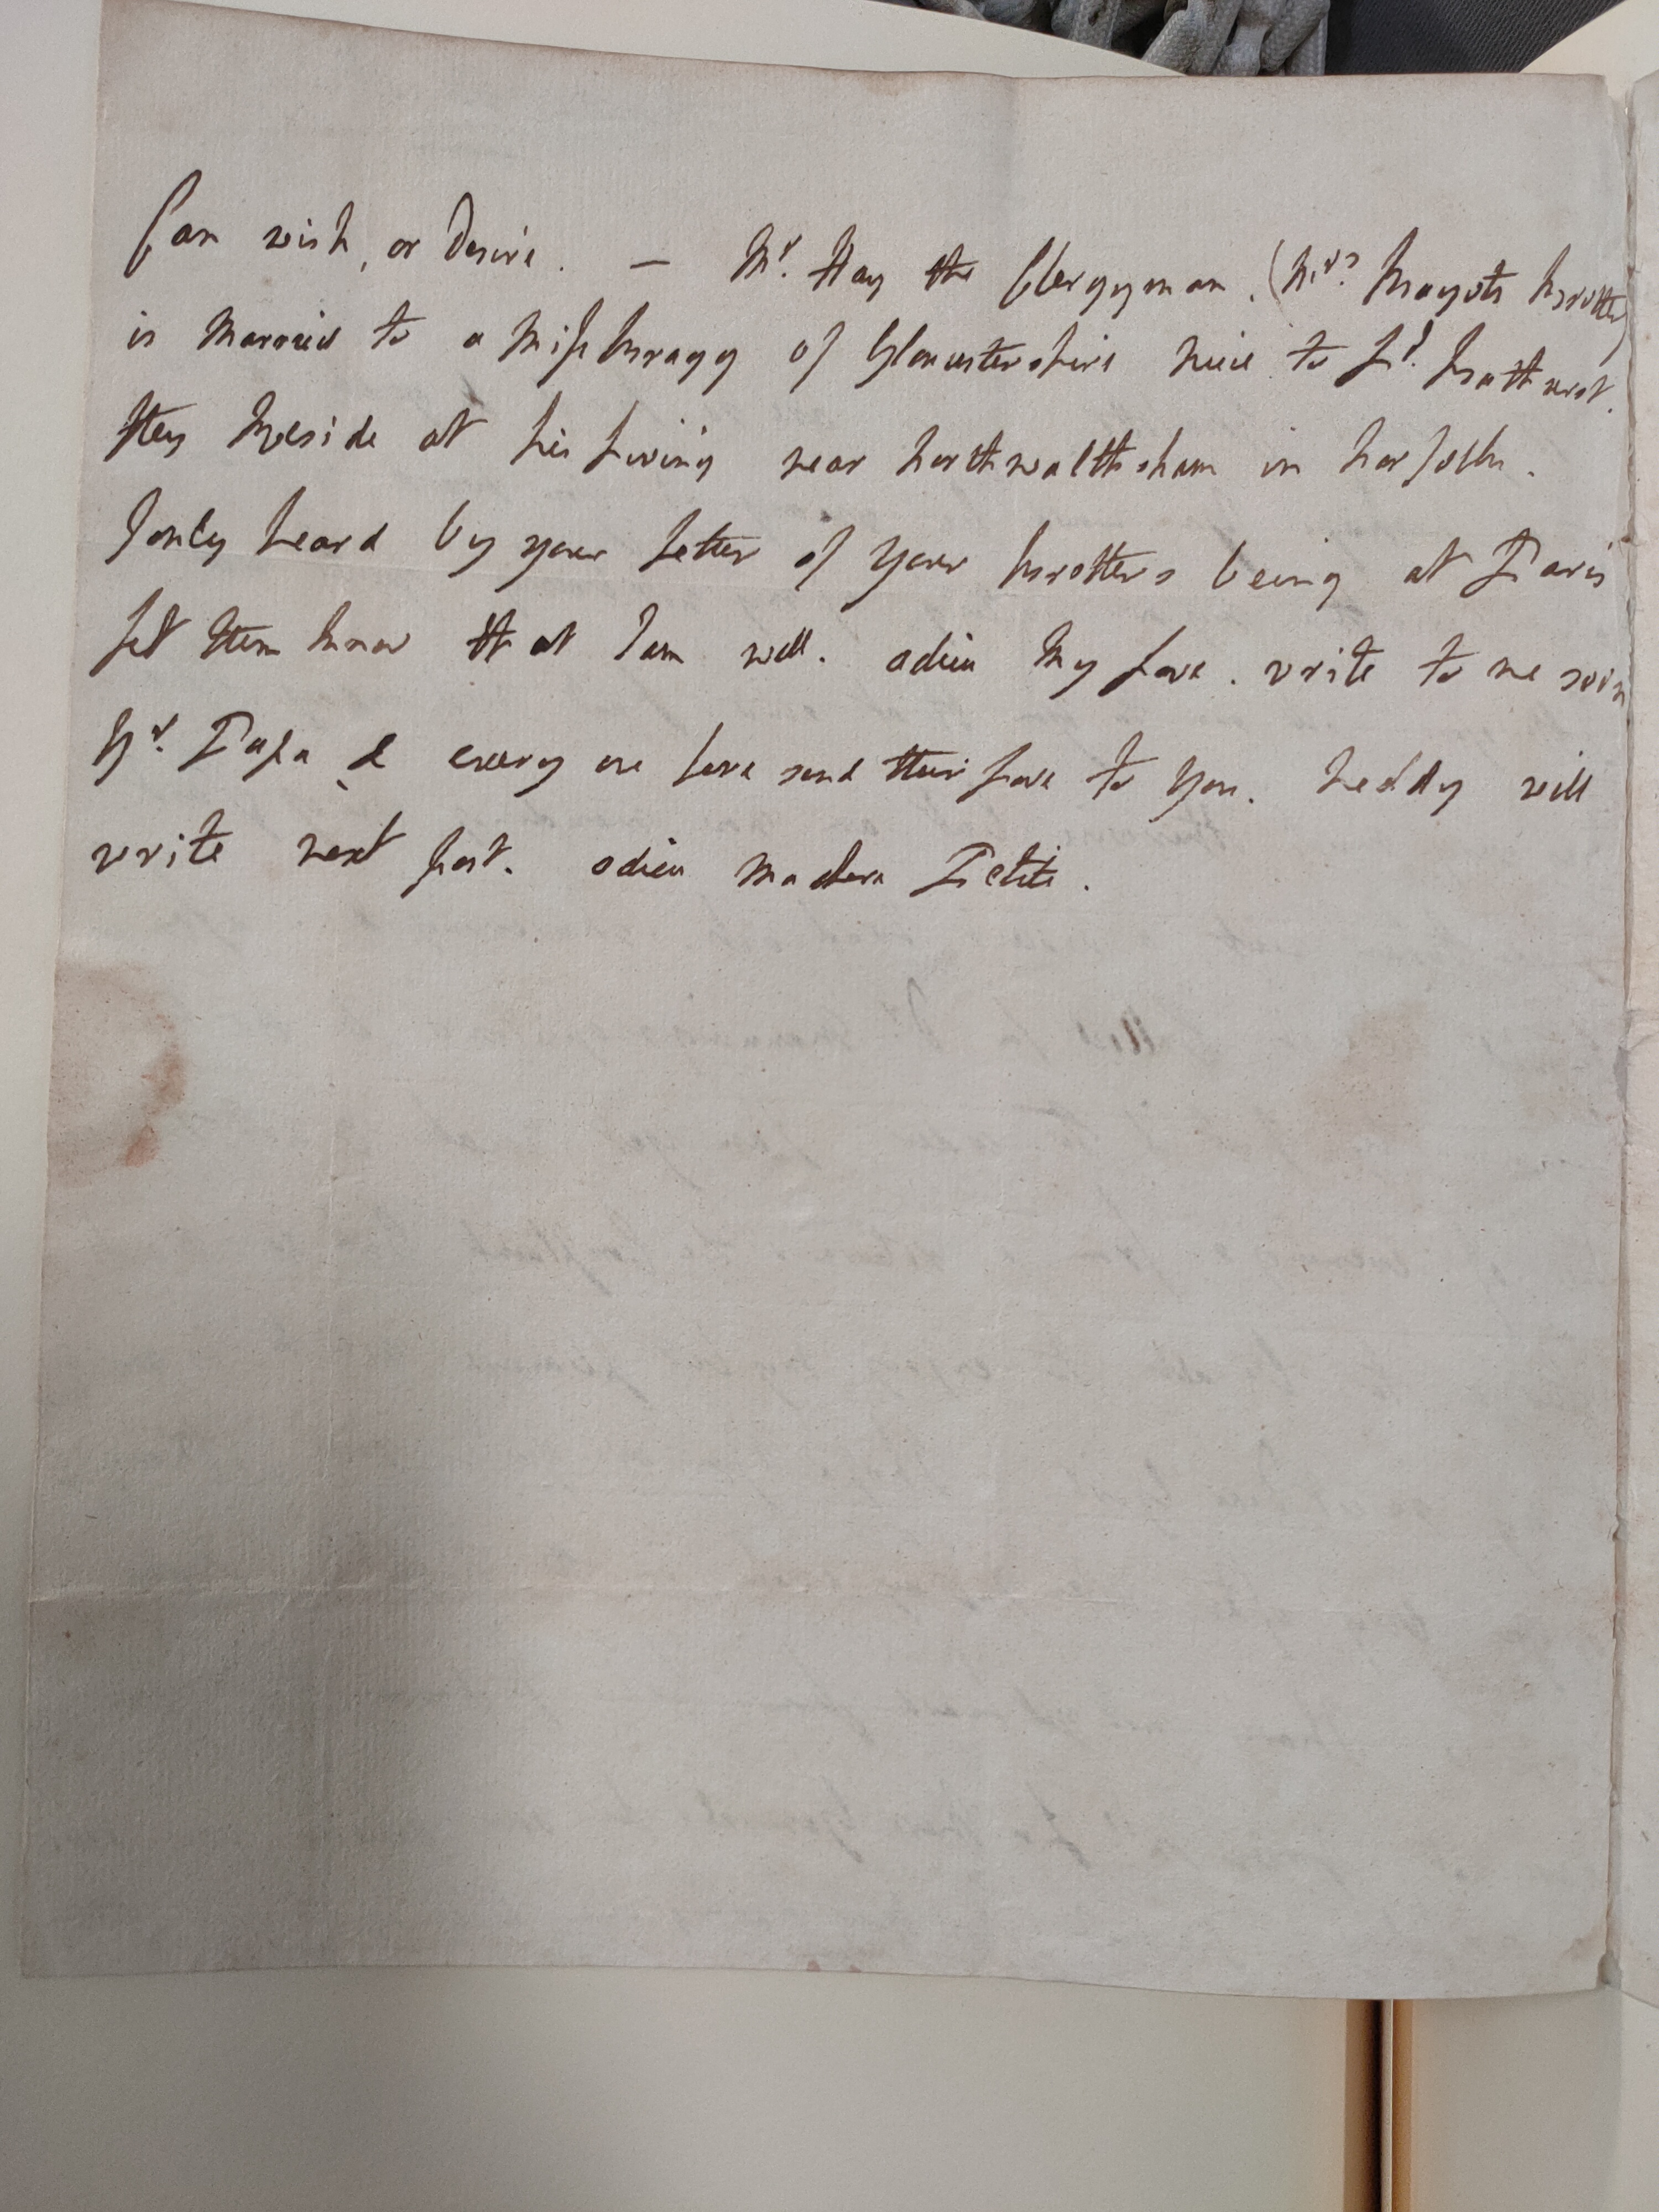 Can wish, or Desire. — Mr. Hay the Clergyman. (Mrs. Bragots Brother)
is Married to a Miss Bragg of Gloucestershire neice to Ld. Bathurst.
they Reside at his Living near Northwalthsham in Norfolk.
I only heard by your Letter of your Brothers being at Paris
Let them know that I am well. adieu My Love. write to me soon
Yr. Papa & every one here send their Love to you. Neddy will
write next post. adieu ma chere Petite.